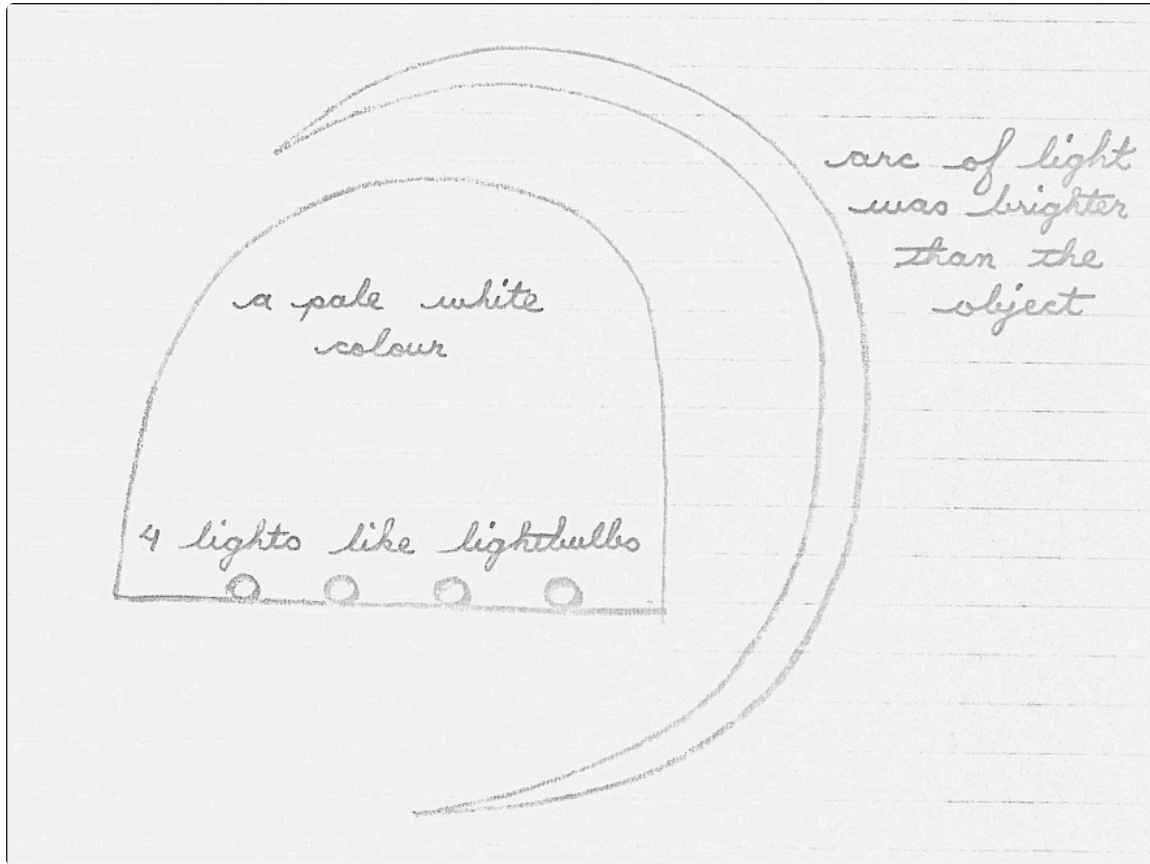 arc of light
was brighter
than the
object
a pale white
colour
4 lights like lightbulbs